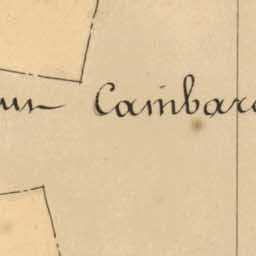 un Cambar